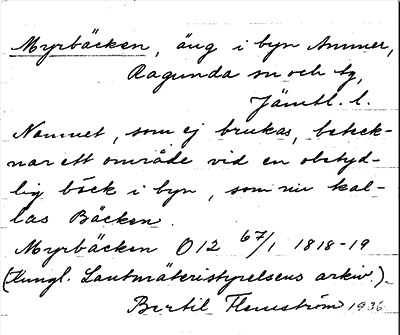 Myrbäcken, äng i byn Ammer,
Ragunda sn och tg,
Jämtl. l.
Namnet, som ej brukas, beteck-
nar ett område vid en obetyd-
lig bäck i byn, som nu kal-
las Bäcken.
Myrbäcken O12 67/1 1818-19
(Kungl. Lantmäteristyrelsens arkiv.)
Bertil Flemström 1936